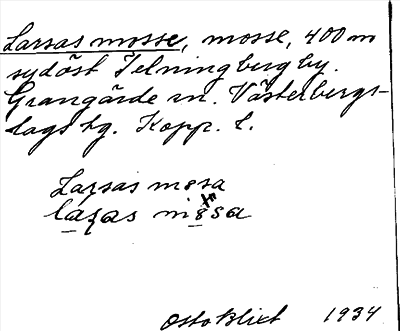 Larsas mosse, mosse, 400 m
sydöst Telningberg by.
Grangärde sn. Västerbergs-
lags tg. Kopp. l.
Larsas mosa
Otto Blixt 1934